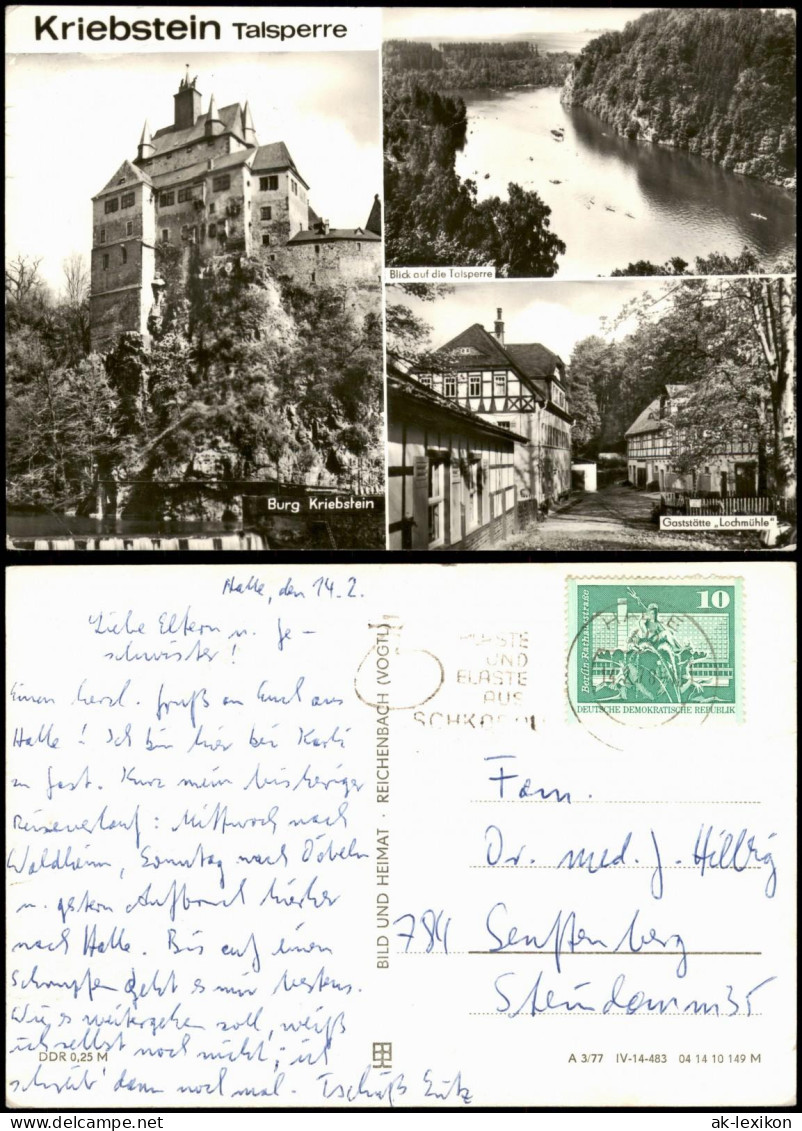 Kriebstein Talsperre
Blick auf die Talsperre
Burg Kriebstein
Gaststätte „Lochmühle"
Halle, den 14.2.
Liebe Eltern u. Ge-
schwister!
Einen herzl. Gruß an Euch aus
Halle! Ich bin hier bei Karli
zu Gast. Kurz mein bisheriger
Reiseverlauf: Mittwoch nach
Waldheim, Sonntag nach Döbeln
u. gestern Aufbruch hierher
nach Halle. Bis auf einen
Schnupfen geht es mir bestens.
Wie es weitergehen soll, weiß
ich selbst noch nicht; ich
schreib' dann noch mal. Tschüß Lutz
DDR 0,25 M
BILD UND HEIMAT · REICHENBACH (VOGTL)
UND
AUS
HALLE
10
Berlin-Rathausstraße
DEUTSCHE DEMOKRATISCHE REPUBLIK
Fam.
Dr. med. J. Hillbig
784 Senftenberg
Steindamm 35
A 3/77 IV-14-483 04 14 10 149 M
ak-lexikon.com